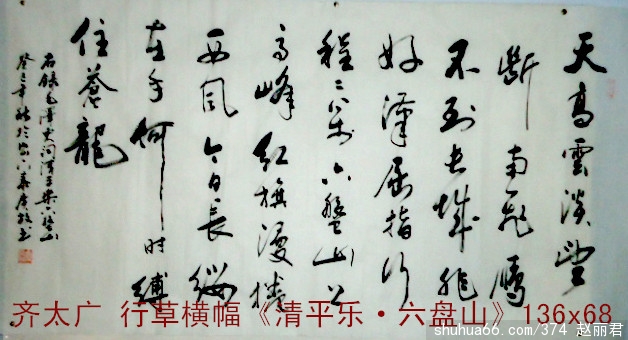 天高雲淡望
断南飛雁
不到长城非
好漢屈指行
程二万六盤山上
高峰红旗漫捲
西風今日長纓
在手何时縛
住蒼龍
右録毛澤東词清平樂六盤山
齐太广 行草横幅《清平乐·六盘山》136x68
shuhua66.com/374 赵丽君